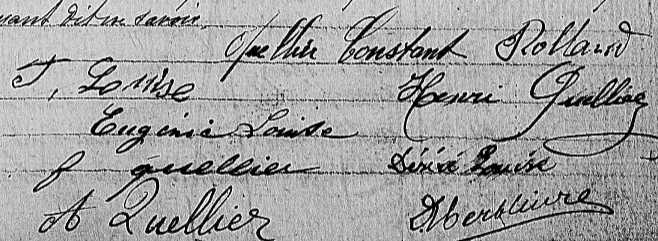 dit en savoir.
Quellier Constant Rolland
T, Louise Henri Quellier
Eugénie Louise
f quellier Désiré Louise
A Quellier